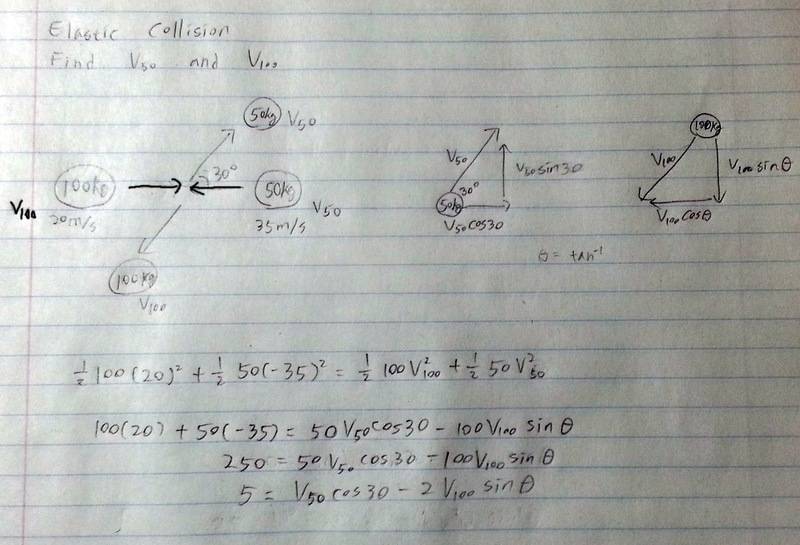 Elastic Collision
Find V₅₀ and V₁₀₀
50kg V₅₀
30°
100kg
50kg
V₁₀₀
20m/s
35m/s
V₅₀
100kg
V₁₀₀
V₅₀
V₅₀sin30
30°
50kg
V₅₀cos30
100kg
V₁₀₀
V₁₀₀sinθ
V₁₀₀cosθ
θ = tan⁻¹
½ 100(20)² + ½ 50(-35)² = ½ 100V₁₀₀² + ½ 50V₅₀²
100(20) + 50(-35) = 50V₅₀cos30 - 100V₁₀₀ sinθ
250 = 50V₅₀ cos30 - 100V₁₀₀sinθ
5 = V₅₀cos30 - 2V₁₀₀ sinθ